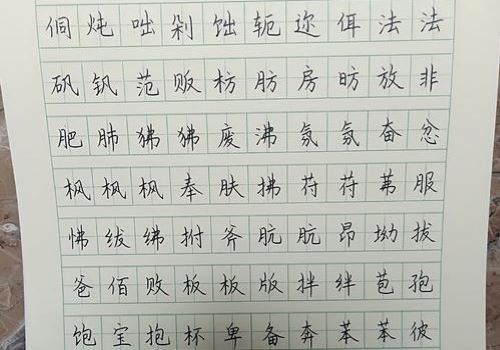 侗炖咄剁饳轭迩佴法法
矾钒范贩枋肪房昉放非
肥肺狒狒废沸氛氛奋忿
枫枫枫奉肤拂苻苻芾服
怫绂绋拊斧肮肮昂坳拔
爸佰败板板版拌绊苞孢
饱宝抱杯卑备奔苯苯彼